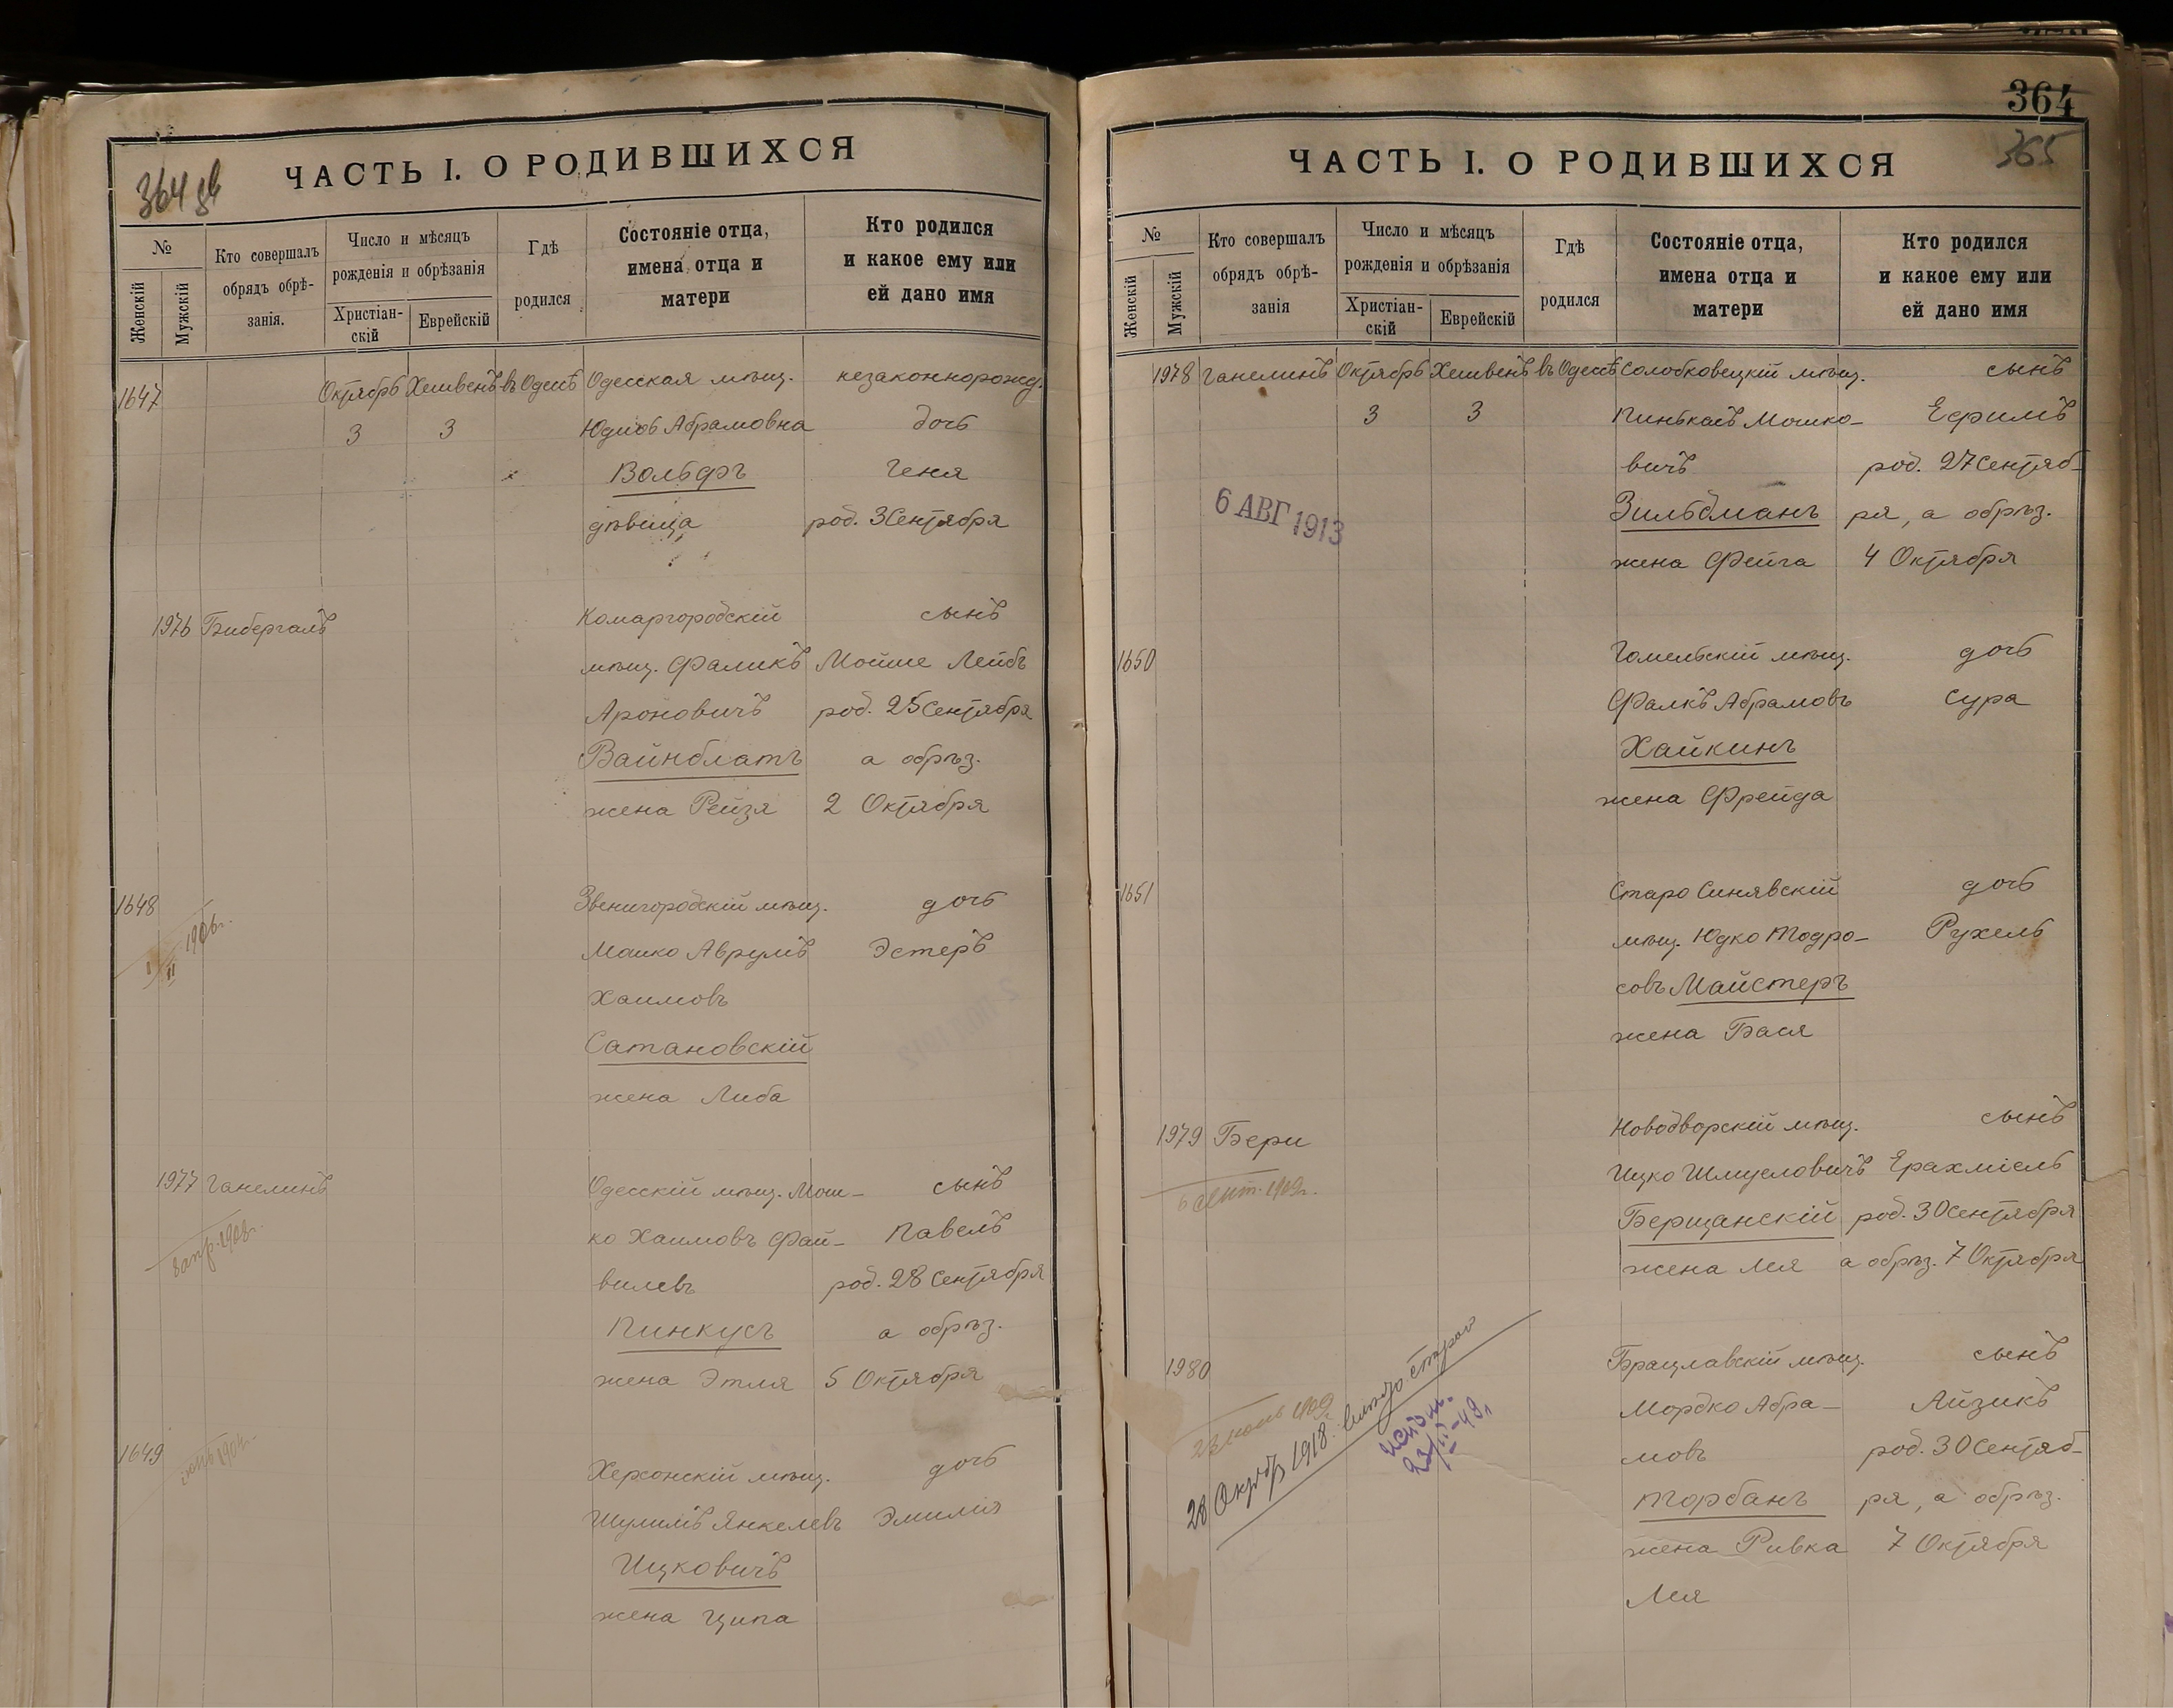 364 об
ЧАСТЬ I. О РОДИВШИХСЯ
№
Женскій
Мужскій
Кто совершалъ
обрядъ обрѣ-
занія.
Число и мѣсяцъ
рожденія и обрѣзанія
Христіан-
скій
Еврейскій
Гдѣ
родился
Состояніе отца,
имена отца и
матери
Кто родился
и какое ему или
ей дано имя
1647 Октябрь Хешвенъ въ Одессѣ Одесская мѣщ. незаконнорожд.
3 3 Юдиѳь Абрамовна дочь
Вольфъ Геня
дѣвица род. 3 Сентября
1976 Бибергалъ Комаргородскій сынъ
мѣщ. Фаликъ Мойше Лейбъ
Ароновичъ род. 25 Сентября
Вайнблатъ а обрѣз.
жена Рейзя 2 Октября
1648 Звенигородскій мѣщ. дочь
1906г. Машко Аврумъ Эстеръ
I/II Хаимовъ
Сатановскій
жена Либа
1977 Ганелинъ Одесскій мѣщ. Мош-
сынъ
ко Хаимовъ Фай- Павелъ
вилевъ род. 28 Сентября
Пинкусъ а обрѣз.
жена Этля 5 Октября
1649 Херсонскій мѣщ. дочь
Шулимъ Янкелевъ Эмилія
Ицковичъ
жена Ципа
364
365
ЧАСТЬ I. О РОДИВШИХСЯ
№
Женскій
Мужскій
Кто совершалъ
обрядъ обрѣ-
занія
Число и мѣсяцъ
рожденія и обрѣзанія
Христіан-
скій
Еврейскій
Гдѣ
родился
Состояніе отца,
имена отца и
матери
Кто родился
и какое ему или
ей дано имя
1978 Ганелинъ Октябрь Хешвенъ въ Одессѣ Солобковецкій мѣщ. сынъ
3 3 Пинькасъ Мошко- Ефимъ
вичъ род. 27 Сентяб-
6 АВГ 1913 Зильбманъ ря, а обрѣз.
жена Фейга 4 Октября
1650 Гомельскій мѣщ. дочь
Фалкъ Абрамовъ Сура
Хайкинъ
жена Фрейда
1651 Старо Синявскій дочь
мѣщ. Юдко Тодро- Рухель
совъ Майстеръ
жена Бася
1979 Бери Новодворскій мѣщ. сынъ
Ицко Шмуловичъ Ерахміель
6 Сент. 1909г. Берщанскій род. 30 Сентября
жена Лея а обрѣз. 7 Октября
1980 Брацлавскій мѣщ. сынъ
Мордко Абра- Айзикъ
мовъ род. 30 Сентяб-
Торбанъ ря, а обрѣз.
жена Ривка 7 Октября
Лея
28 Октябр 1918.